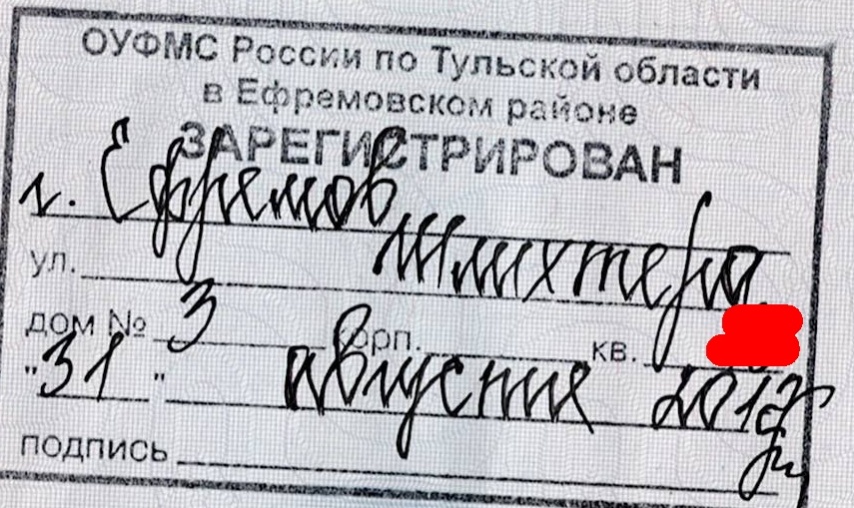 ОУФМС России по Тульской области
в Ефремовском районе
ЗАРЕГИСТРИРОВАН
г. Ефремов
ул. Шлихтера
дом № 3 корп. кв.
"31" августа
подпись